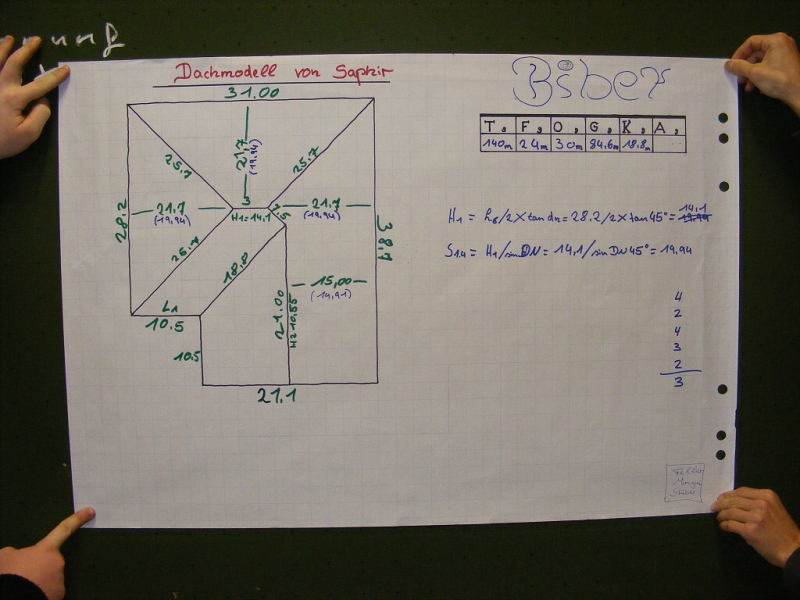 Dachmodell von Saphir
31.00
Biber
T, F, O, G, K, A,
140m 24m 30m 84,6m 18.8m
21,7
(19,94)
25.7
25.7
28.2
21.7
(19,94)
3
H1=14,1
7.5
21.7
(19,94)
38,7
H1 = hB/2 x tan dn = 28.2/2 x tan 45° = 14,1
S1.4 = H1/sin DN = 14,1/sin DN 45° = 19,94
25.7
18.8
15,00
(14,91)
21.00
H2 10.55
L1
10.5
10.5
21.1
4
2
4
3
2
3